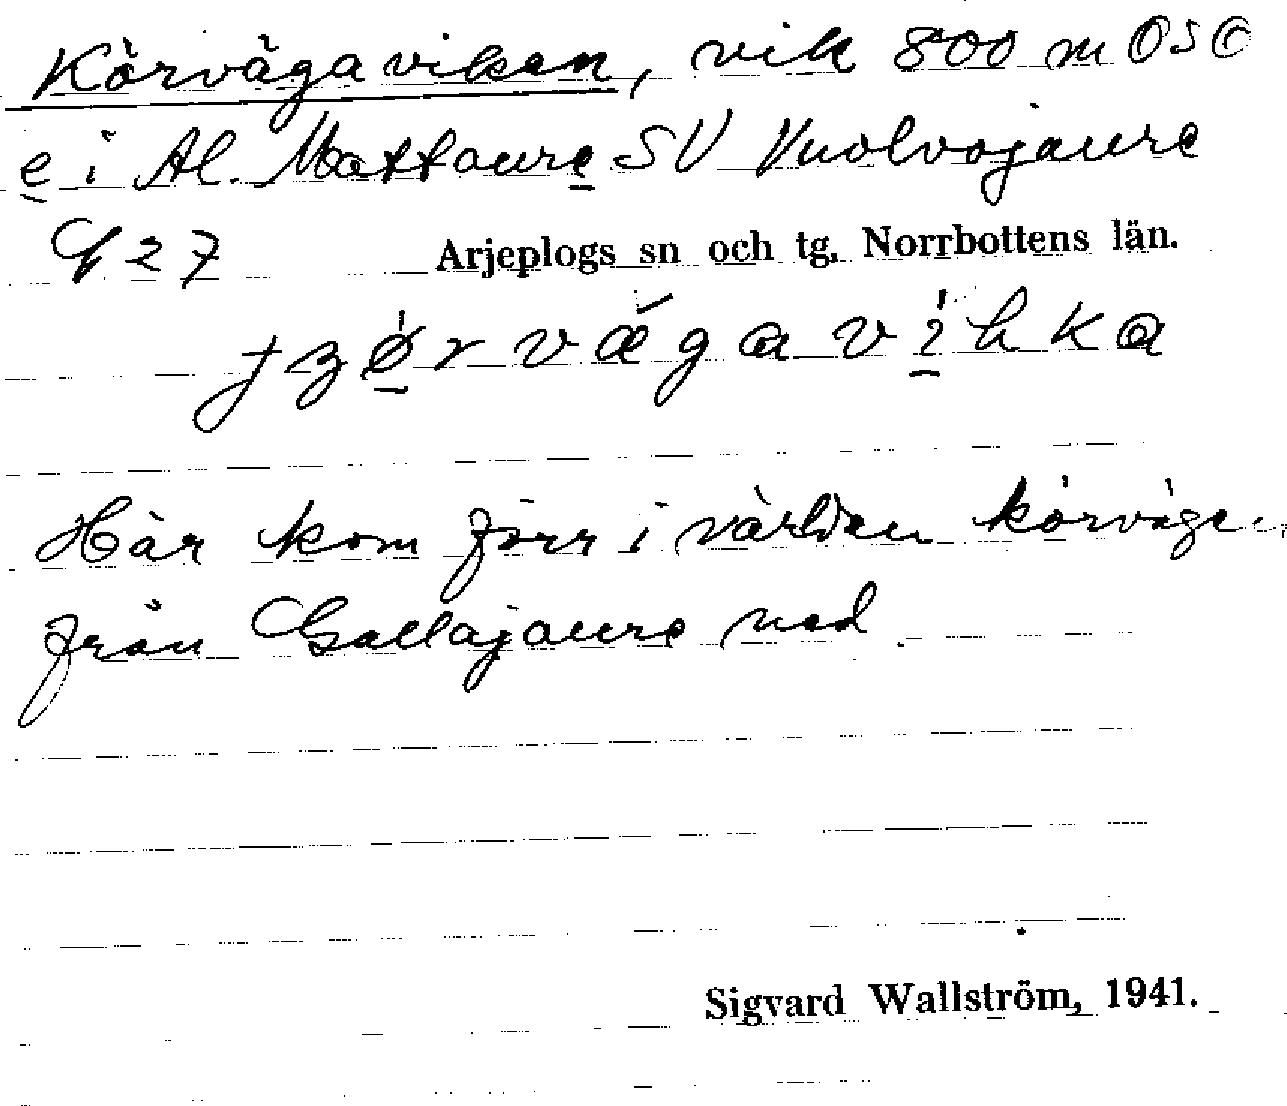 Körvägaviken, vik 800 m OSO
e i Al. Mattaure SV Vuolvojaure
G 27 Arjeplogs sn och tg. Norrbottens län.
Här kom förr i världen körvägen
från Gallajaure ned.
Sigvard Wallström, 1941.